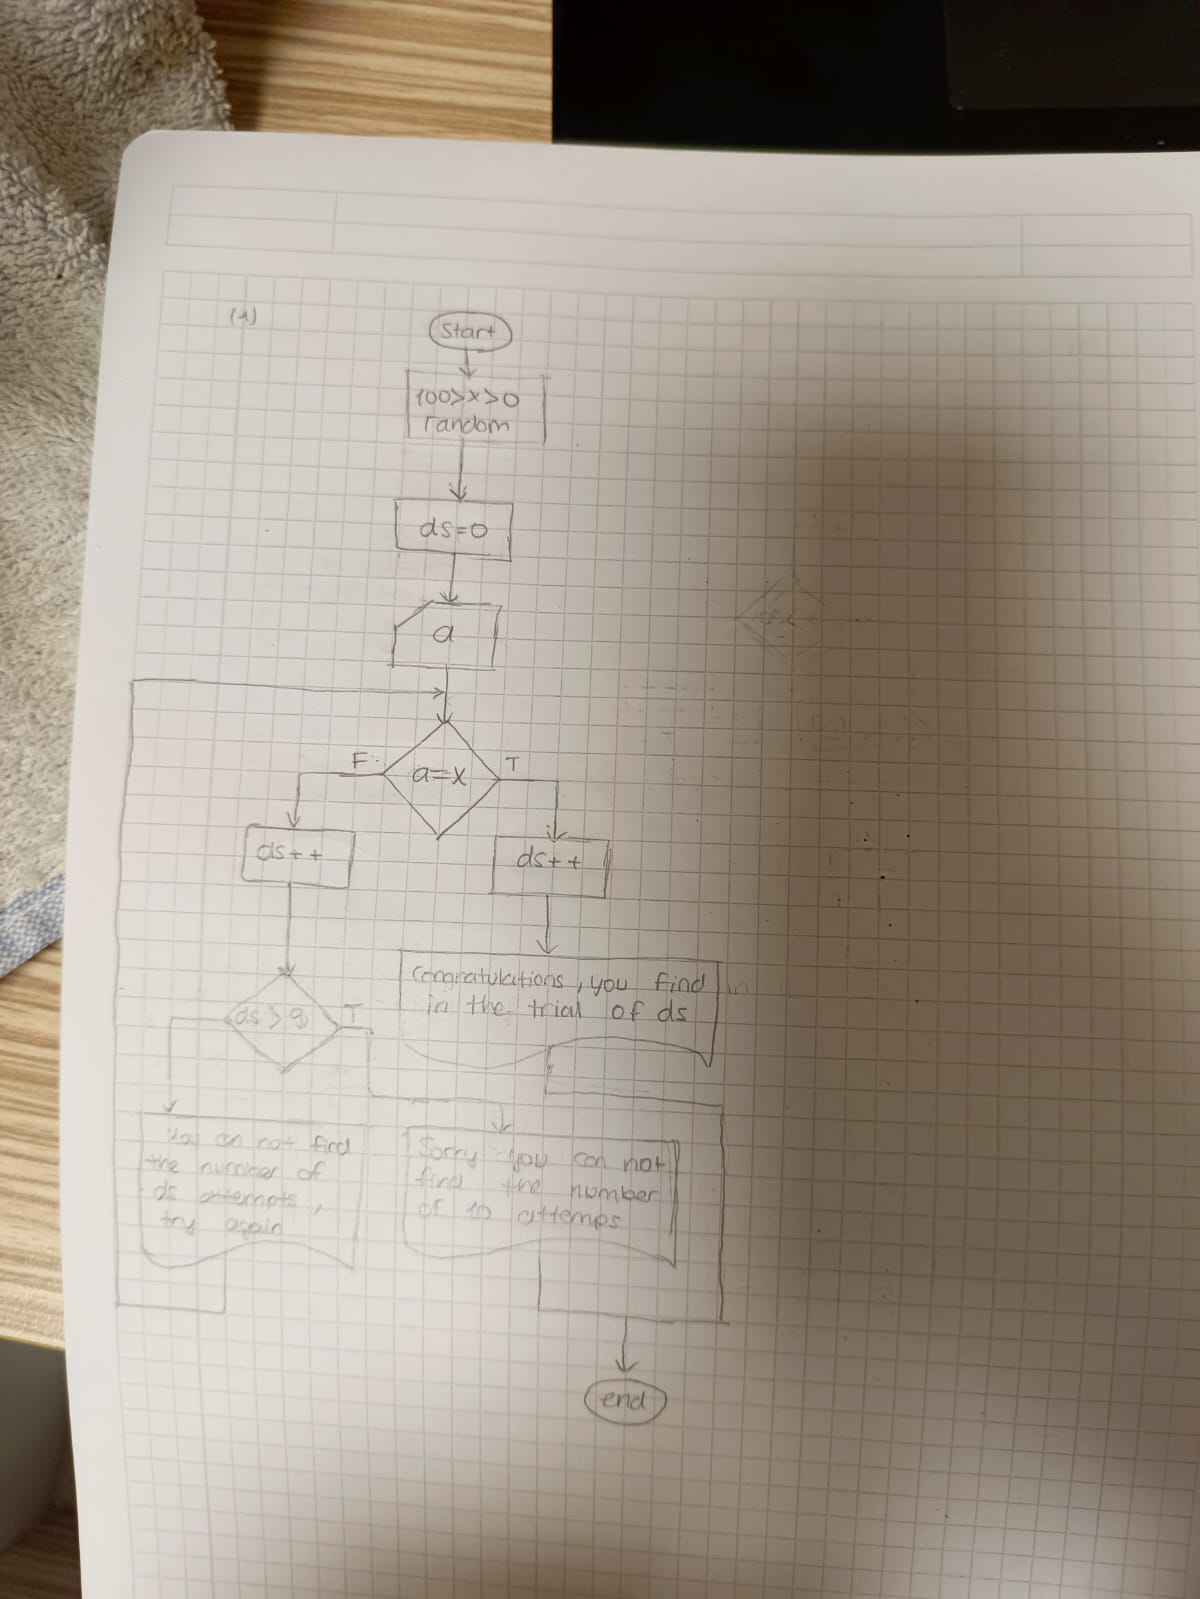 (1)
Start
100>x>0
random
ds=0
a
a=x
F
T
ds++
ds++
Congratulations, you find
in the trial of ds
ds > 9
T
You can not find
the number of
ds attempts,
try again
Sorry you can not
find the number
of 10 attemps
end